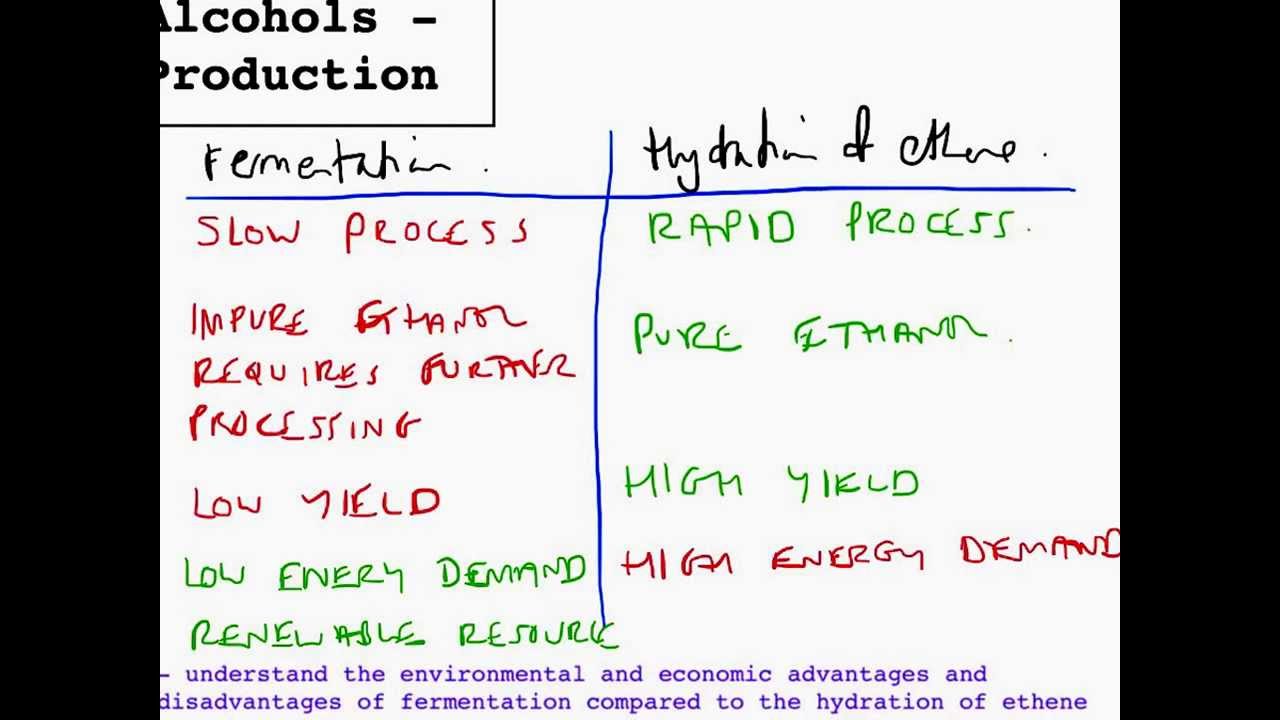 Alcohols -
Production
Fermentation.
Hydration of ethene.
SLOW PROCESS
RAPID PROCESS.
IMPURE ETHANOL
REQUIRES FURTHER
PROCESSING
PURE ETHANOL.
LOW YIELD
HIGH YIELD
LOW ENERY DEMAND
HIGH ENERGY DEMAND
RENEWABLE RESOURCE
- understand the environmental and economic advantages and
disadvantages of fermentation compared to the hydration of ethene